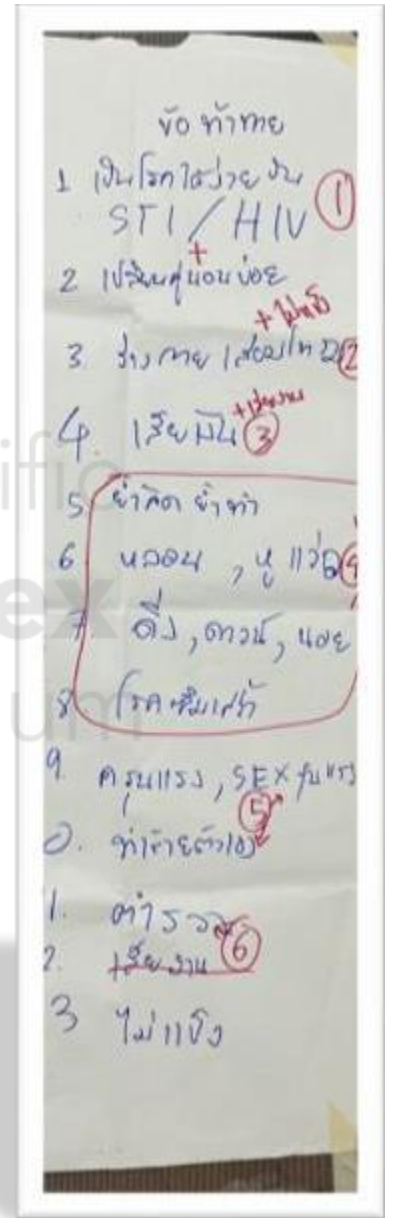 ข้อ ท้าทาย
1 เป็นโรคได้ง่าย เช่น ①
STI / HIV
+
2 เปลี่ยนคู่นอนบ่อย
+ ไม่แข็ง
3 ร่างกาย เสื่อมโทรม ②
4. เสียเงิน ③ + เสียงาน
5 ย้ำคิด ย้ำทำ
6 หลอน , หูแว่ว ④
7. ดิ่ง , ดาวน์ , นอย
8 โรคซึมเศร้า
9. รุนแรง , SEX รุนแรง
⑤
0. ทำร้ายตัวเอง
1. ตำรวจ
2. เสียงาน ⑥
3 ไม่แข็ง